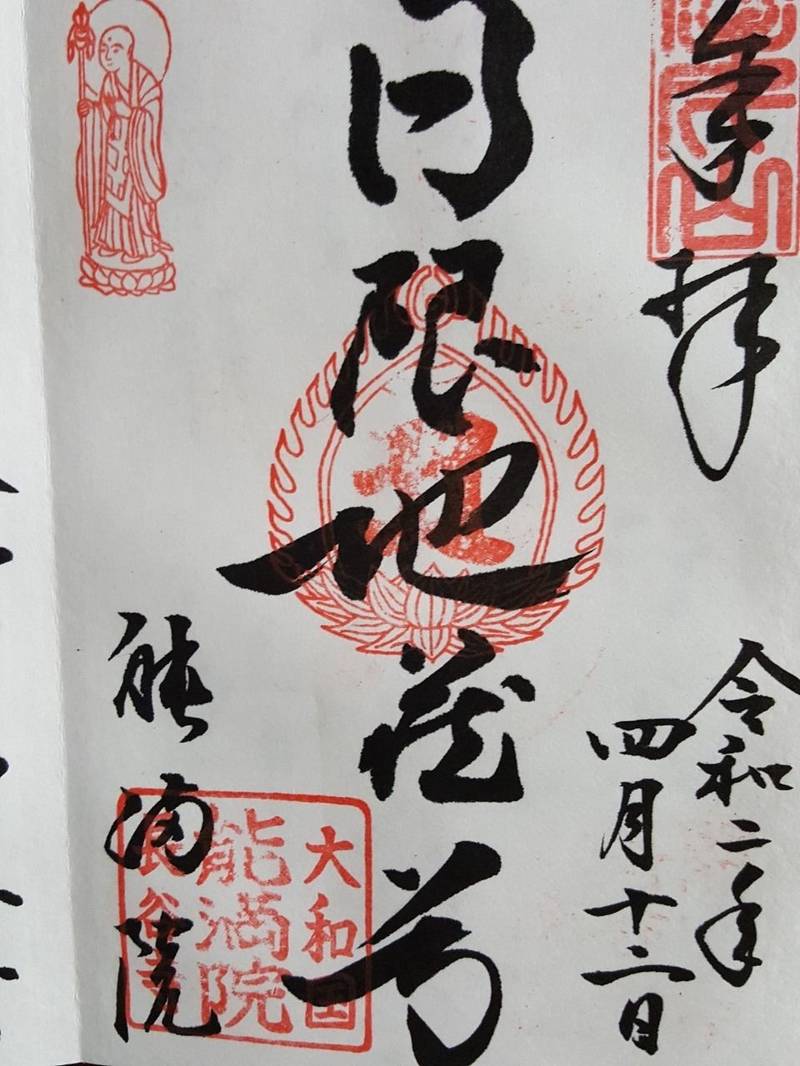 奉拝
令和二年
四月十二日
日限地蔵尊
能満院
大和国
能満院
長谷寺